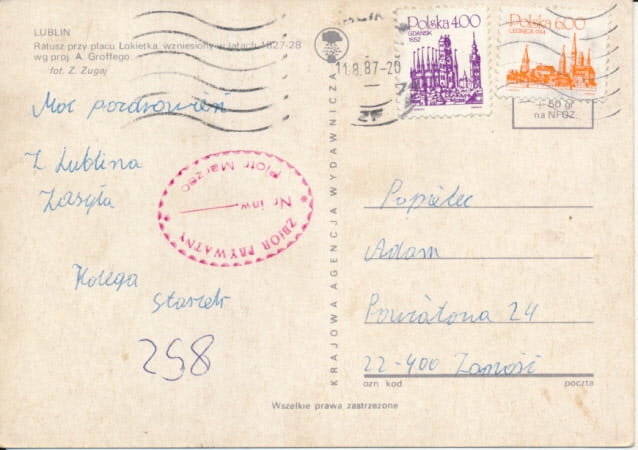 LUBLIN
Ratusz przy placu Łokietka, wzniesiony w latach 1827-28
wg proj. A. Groffego
fot. Z. Zugaj
Moc pozdrowień
Z Lublina
Zasyła
Kolega
Staszek
258
ZBIÓR PRYWATNY
Nr inw.
Piotr Marzec
KRAJOWA AGENCJA WYDAWNICZA
11.8.87-20
Polska 4.00
GDAŃSK
1652
Polska 6.00
LEGNICA
+ 50 gr
na NFOZ.
Popielec
Adam
Powiatowa 24
22-400 Zamość
ozn kod poczta
Wszelkie prawa zastrzeżone